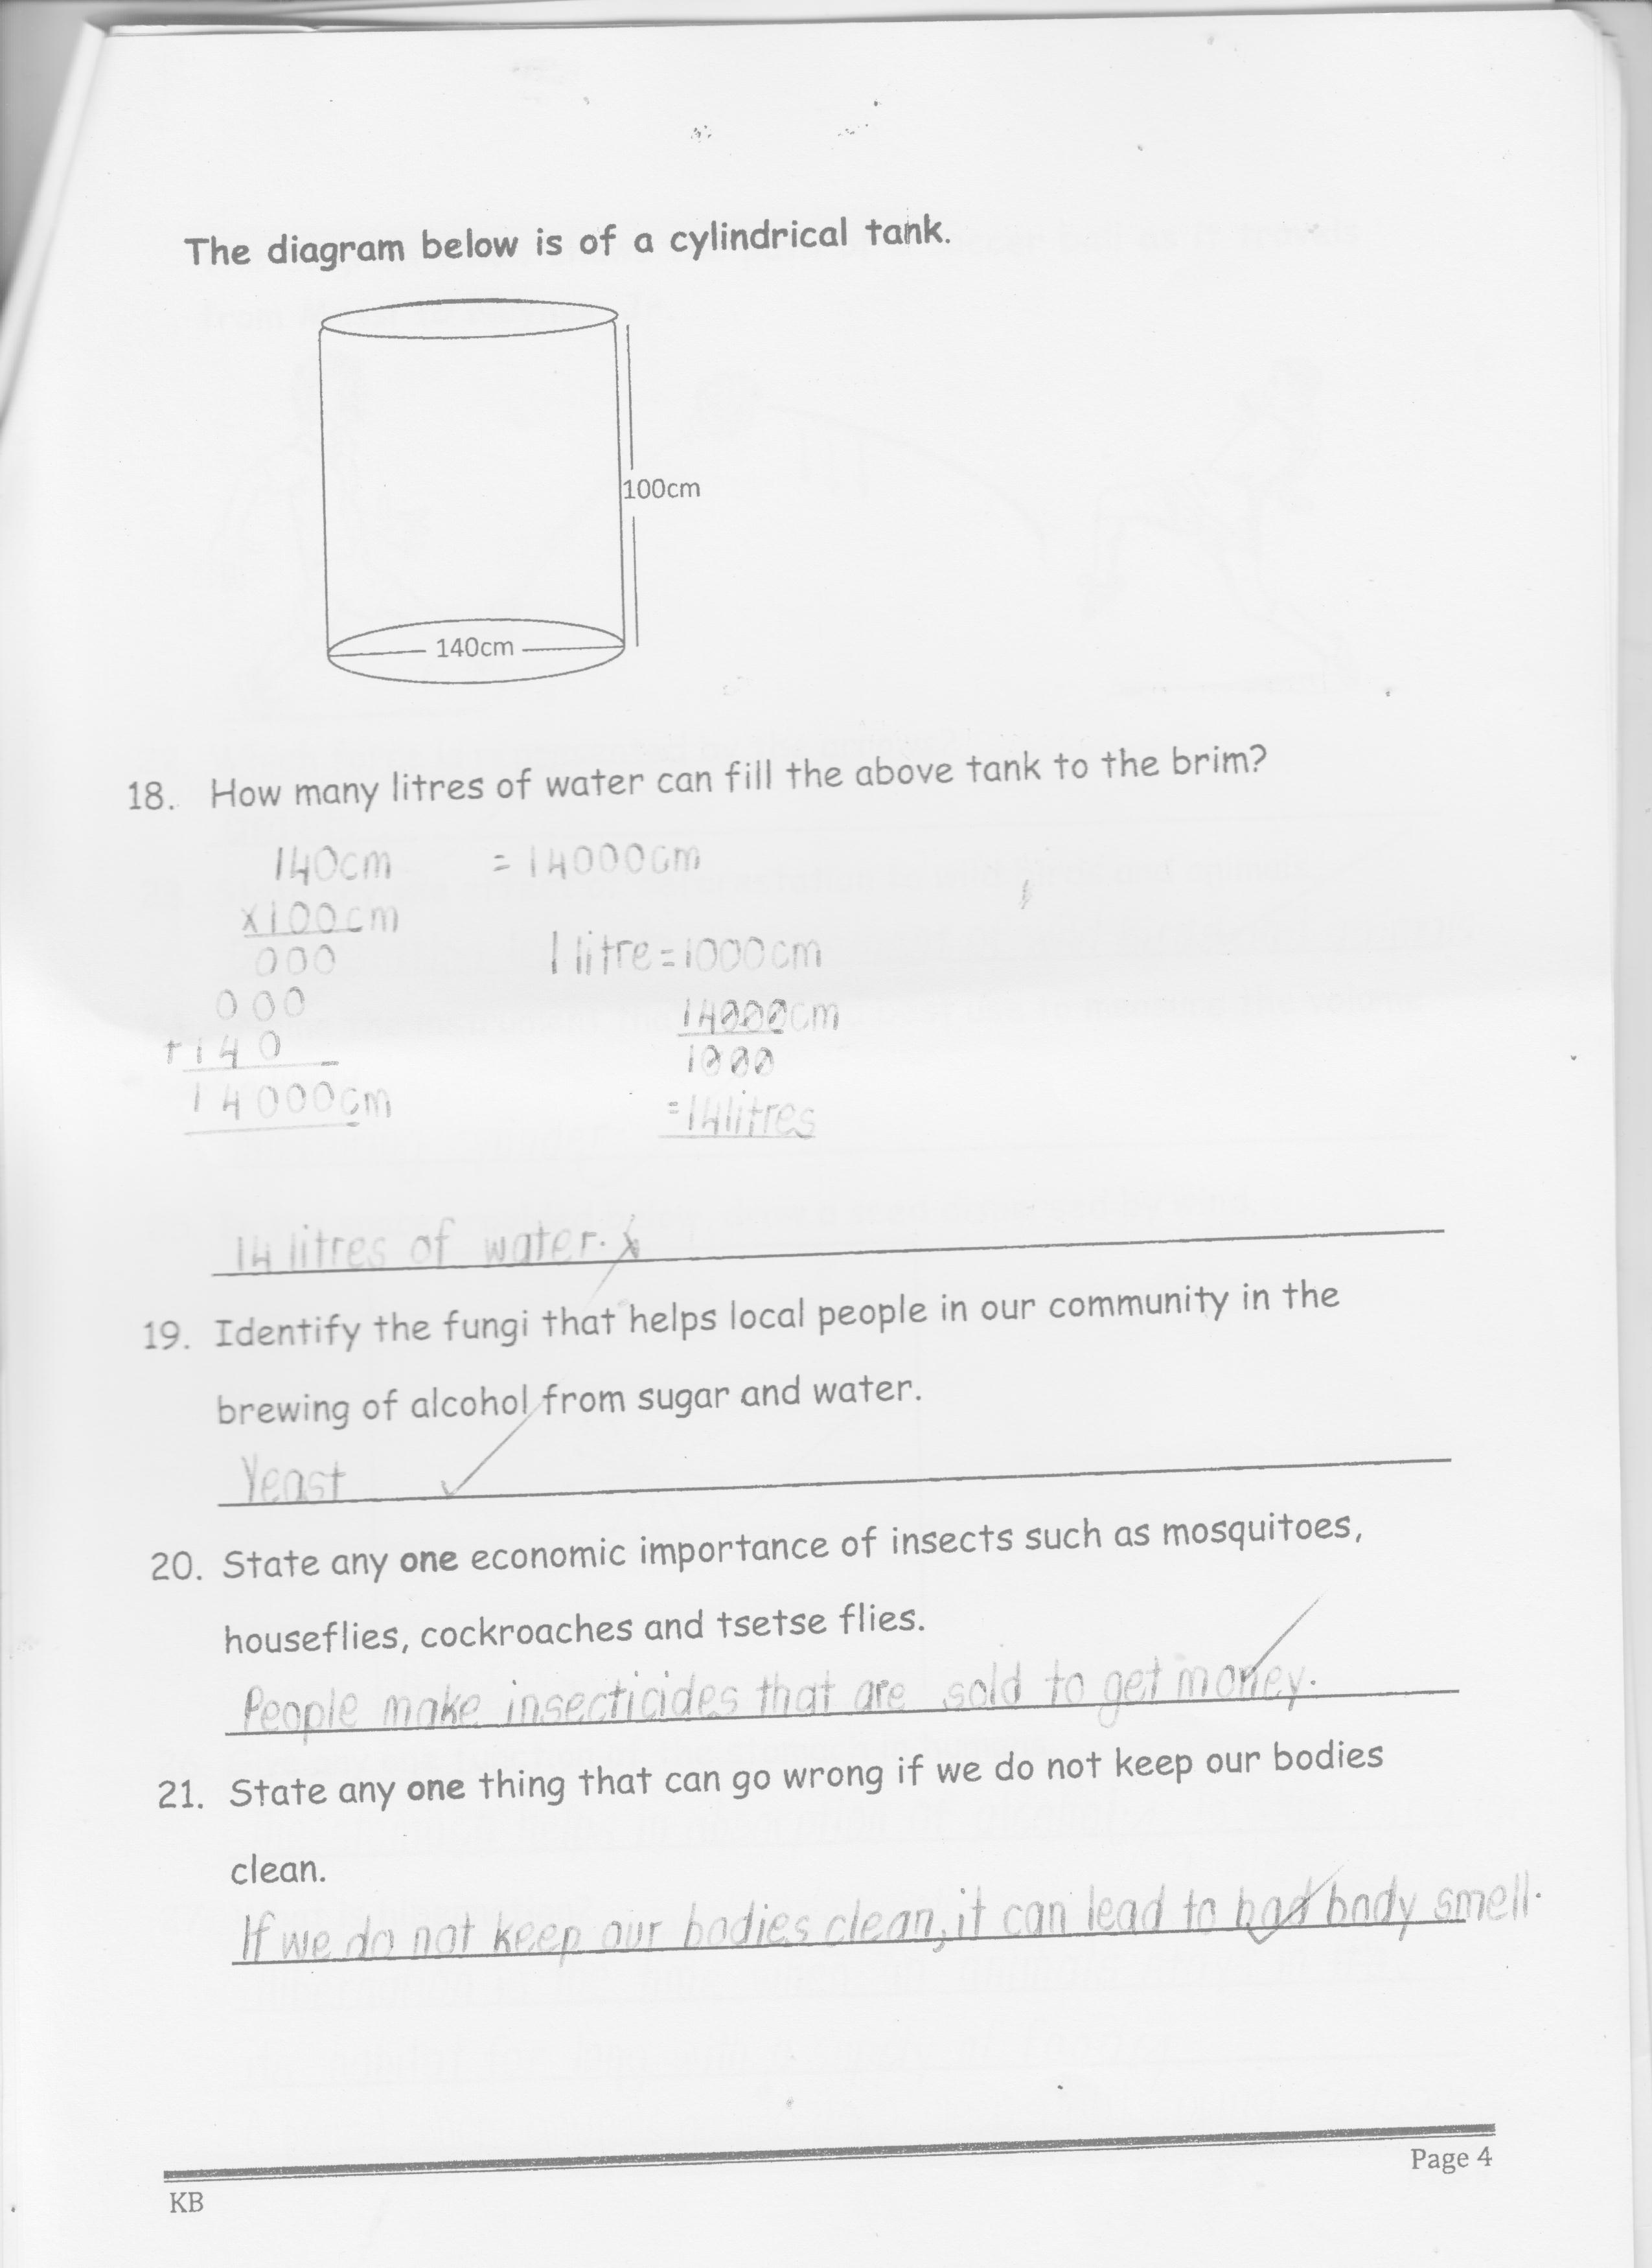 The diagram below is of a cylindrical tank.
100cm
140cm
18. How many litres of water can fill the above tank to the brim?
140cm = 14000cm
x100cm
000 1 litre = 1000cm
000 14000cm
+140 1000
14000cm = 14litres
14 litres of water.
19. Identify the fungi that helps local people in our community in the
brewing of alcohol from sugar and water.
Yeast
20. State any one economic importance of insects such as mosquitoes,
houseflies, cockroaches and tsetse flies.
People make insecticides that are sold to get money.
21. State any one thing that can go wrong if we do not keep our bodies
clean.
If we do not keep our bodies clean, it can lead to bad body smell.
Page 4
KB